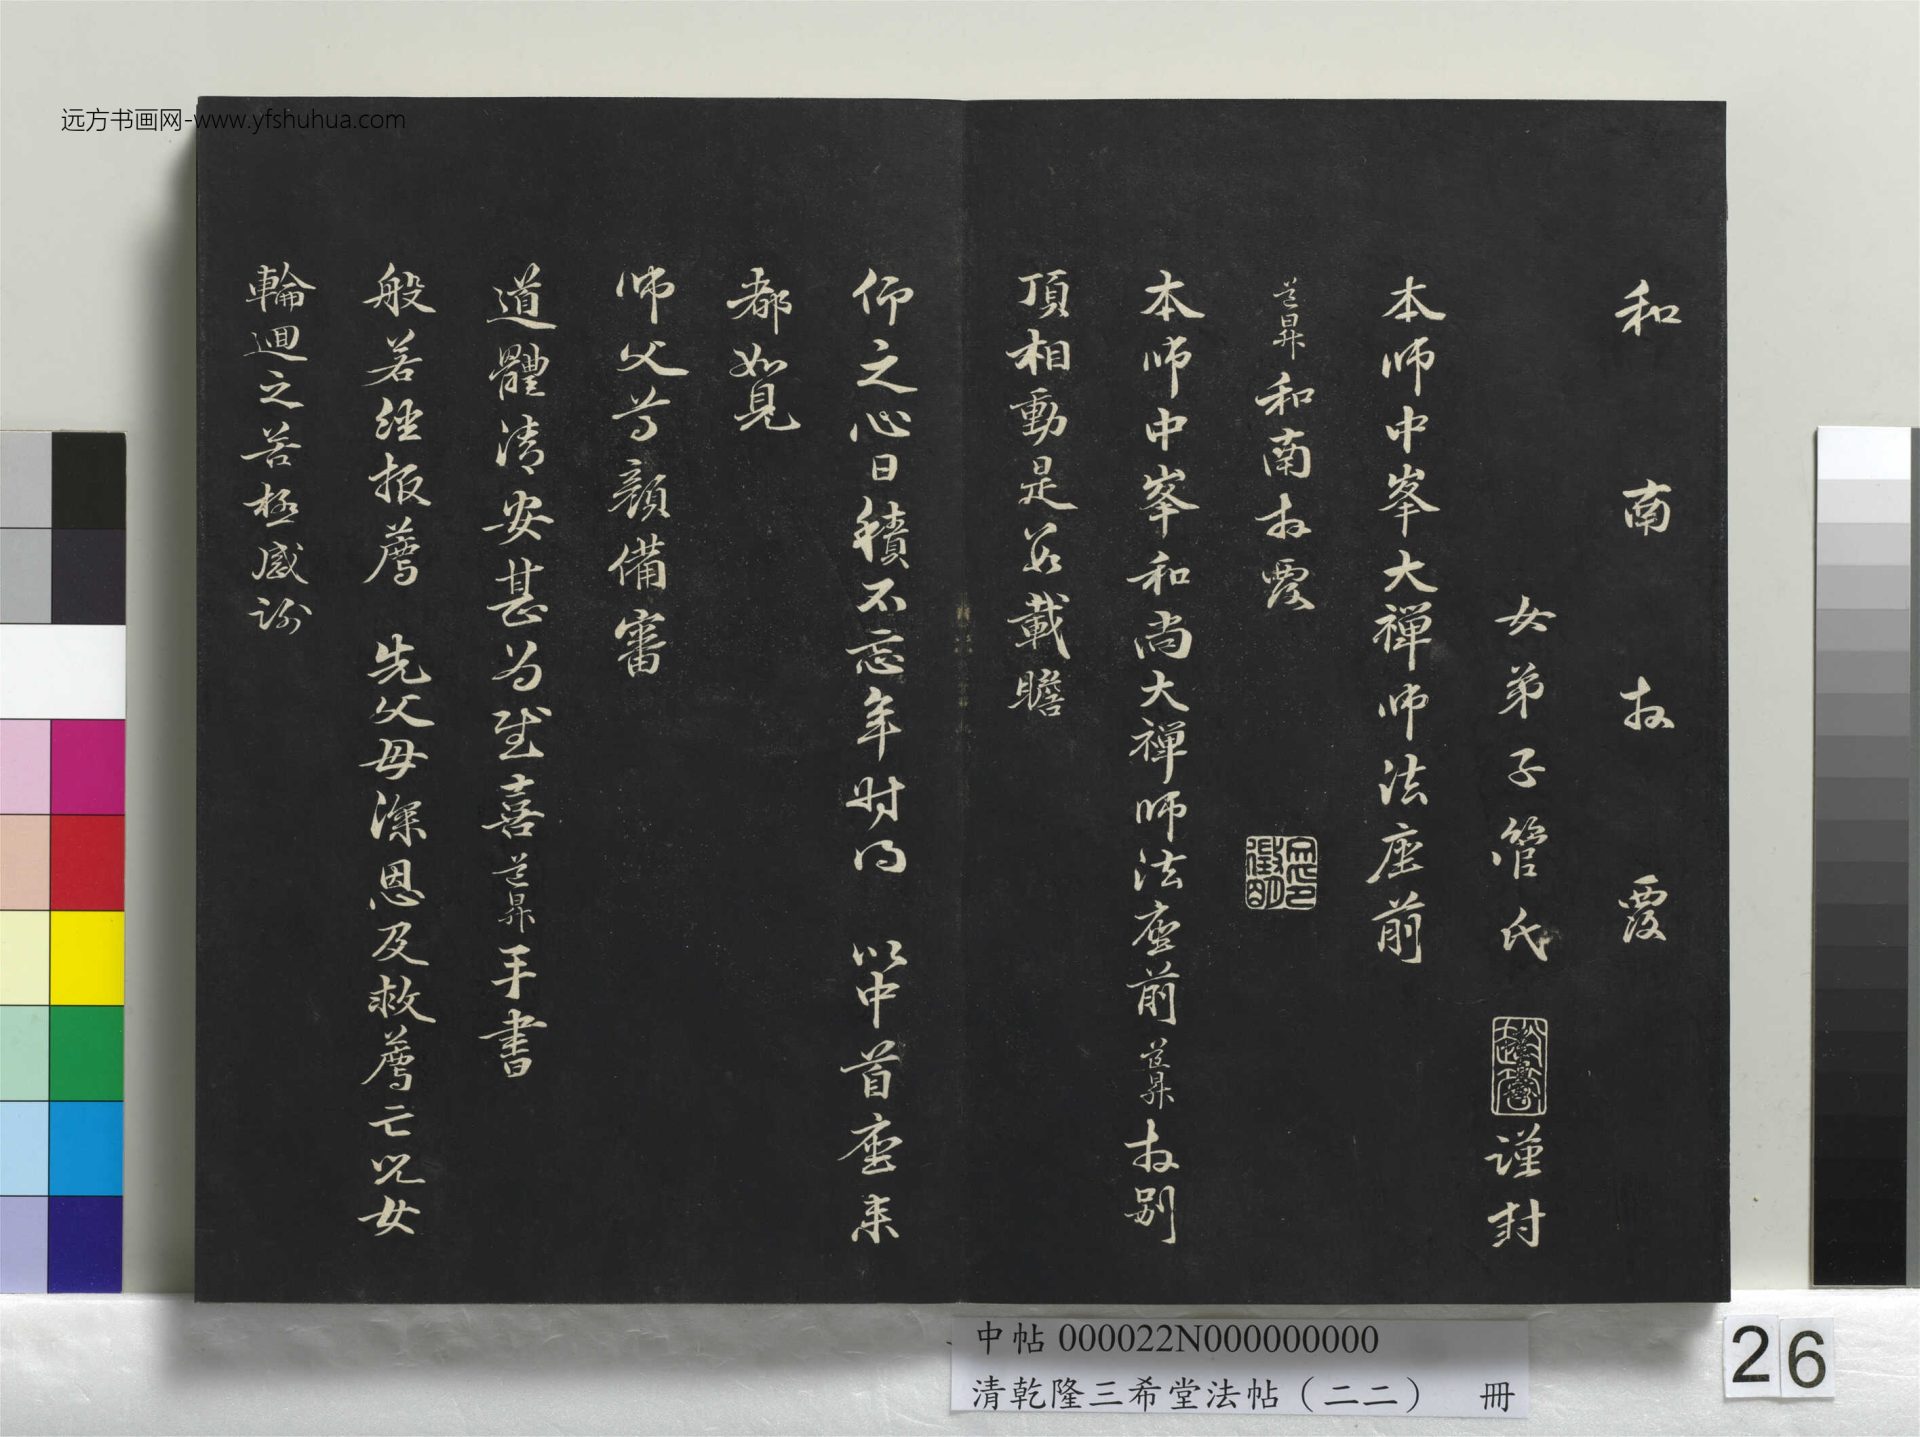 远方书画网-www.yfshuhua.com
和南拜覆
女弟子管氏 謹封
本师中峯大禅师法座前
道昇和南拜覆
本师中峯和尚大禅师法座前道昇拜别
頂相動是数載瞻
仰之心日積不忘年时得 以中首座来
都如見
师父尊顔備審
道體清安甚为慰喜道昇手書
般若经报薦 先父母深恩及救薦亡兒女
輪迴之苦極感謝
中帖 000022N000000000
清乾隆三希堂法帖（二二） 冊
26